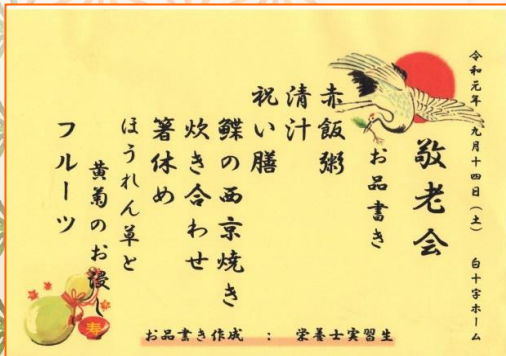 令和元年 九月十四日(土) 白十字ホーム
敬老会
お品書き
赤飯粥
清汁
祝い膳
鰈の西京焼き
炊き合わせ
箸休め
ほうれん草と
黄菊のお浸し
フルーツ
寿
お品書き作成 : 栄養士実習生